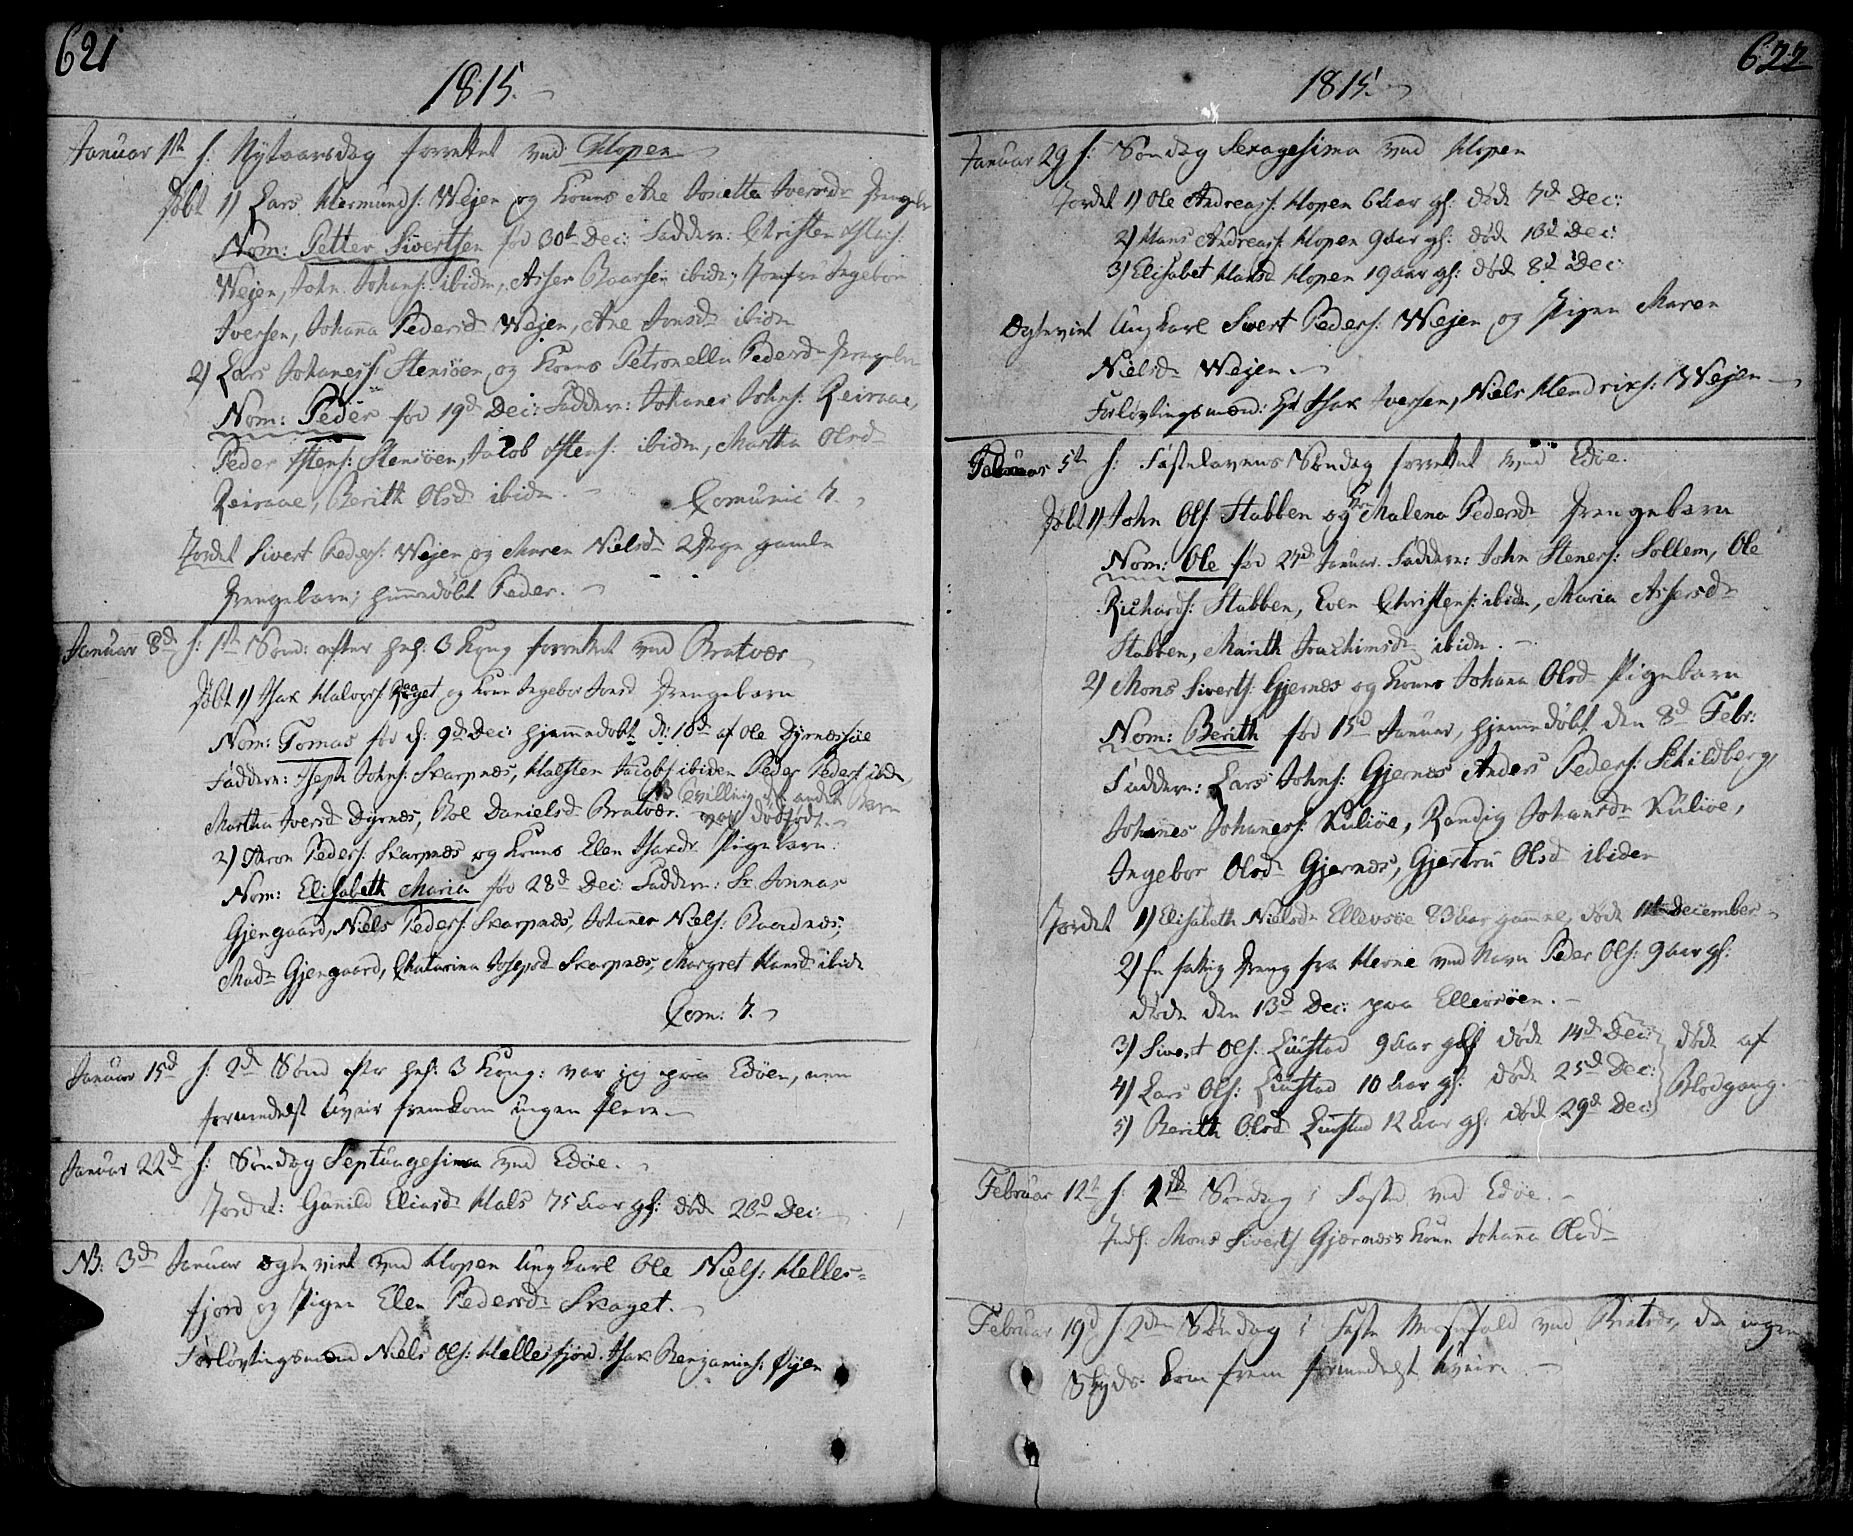 621
1815.
Januar 1te h: Nytaarsdag forrettet ved Hopen
Døbt 1) Lars Hermunds: Wejen og Kones Ane Jonetta Iversd: Drengeb:
Nom: Petter Sivertsen fød 30te Dec: Faddere: Christen
Wejen, John Johans: ibidn, Asser Baarsen ibidn, Jomfru Ingebor
Iversen, Johanna Pedersd: Wejen, Ane Jonsd: ibidn
2) Lars Johaness: Stensøen og Kones Petronella Pedersd: Drengebn
Nom: Peder fød 19d Dec: Faddere: Johanes Johns: Reiraae,
Peder Stens: Stensøen, Jacob ibidn, Martha Olsd
Reiraae, Berith Olsd ibidn. Comunic 7.
Jordet Sivert Peders: Wejen og Maren Nielsd 2 Dage gamle
Drengebarn; hjmmedøbt Peder.
Januar 8d h: 1te Sønd: efter hel: 3 Kong forrettet ved Bratvær
Døbt 1) Isak Halvors: Raaget og Kone Ingebor Jonsd Drengebarn
Nom: Tomas fød d: 9d Dec: hjemmedøbt d: 10d af Ole Dyrnæssøe
Faddere: Joseph Johns: Skarpnæs, Halsten Jacobs ibiden Peder Peders ibidn,
NB Tvilling det andet Barn
Martha Iversd Dyrnæs, Boe Danielsd Bratvær. var dødfødt.
2) Aron Peders: Skarpnæs og Kones Elen Isaxdr Pigebarn.
Nom: Elisabeth Maria fød 28d Dec: Faddere: Sr. Jonnas
Gjengaard, Niels Peders: Skarpnæs, Johannes Niels: Baardnæs:
Mad: Gjengaard, Chatarina Josepsd Skarpnæs, Margret Hansd ibidn
Com: 7.
Januar 15d h: 2d Sønd efter hel: 3 Kong: var jeg paa Edøen, men
formedelst Uveir fremkom ingen flere.
Januar 22d h: Søndag Septuagesima ved Edøe.
Jordet: Gunild Eliasd: Hals 75 Aar gl: døde 20d Dec:
NB: 3d Januar ægteviet ved Hopen Ungkarl Ole Niels: Helles-
fjord og Pigen Elen Pedersd: Skaget.
Forlovtingsmænd Niels Ols: Hellesfjord. Isak Benjamins: Øijen
622
1815.
Januar 29 h: Søndag Sexagesima ved Hopen
Jordet 1) Ole Andreass: Hopen 6 Aar gl: døde 7d Dec:
2) Hans Andreass: Hopen 9 Aar gl: døde 10d Dec:
3) Elisabet Hansd Hopen 19 Aar gl: døde 8d Dec:
Ægteviet Ungkarl Sivert Peders: Wejen og Pigen Maren
Nielsd: Wejen.
Forlovtingsmænd: Isak Iversen, Niels Hendrix: Wejen
Februar 5te h: Fastelavens Søndag forrettet ved Edøe.
Døbt 1) John Ols: Stabben og K. Malena Pedersd: Drengebarn
Nom: Ole fød 27d Januar. Faddere: John Steners: Sollem, Ole
Richards: Stabben, Even Christens: ibidn, Maria Assersd:
Stabben, Marith Joachimsd: ibidn.
2) Mons Siverts: Gjernæs og Kones Johana Olsd Pigebarn
Nom: Berith fød 15d Januar, hjemmedøbt den 8d Febr:
Faddere: Lars Johns: Gjernæs Anders Peders: Schildberg,
Johannes Johannes: Kulsøe, Randig Johansd: Kulsøe,
Ingebor Olsd: Gjernæs, Gjertru Olsd ibiden
Jordet 1) Elisabeth Nielsd: Ellevsøe 83 Aar gamel, døde 11te December
2) En fattig Dreng fra Herne ved Navn Peder Ols: 9 Aar gl:
døde den 13d Dec: paa Ellevsøen.
3) Sivert Ols: Liustad 9 Aar gl: døde 14d Dec: døde af
4) Lars Ols: Liustad 10 Aar gl: døde 25d Dec: Blodgang.
5) Berith Olsd Liustad 12 Aar gl: døde 29d Dec:
Februar 12te h: 1ste Søndag i Faste ved Edøe.
Inds: Mons Siverts Gjærnæs Kone Johanna Olsd
Februar 19d h: 2den Søndag i Faste Messefald ved Bratvær, da ingen
Skyds kom frem formedelst Uveir.